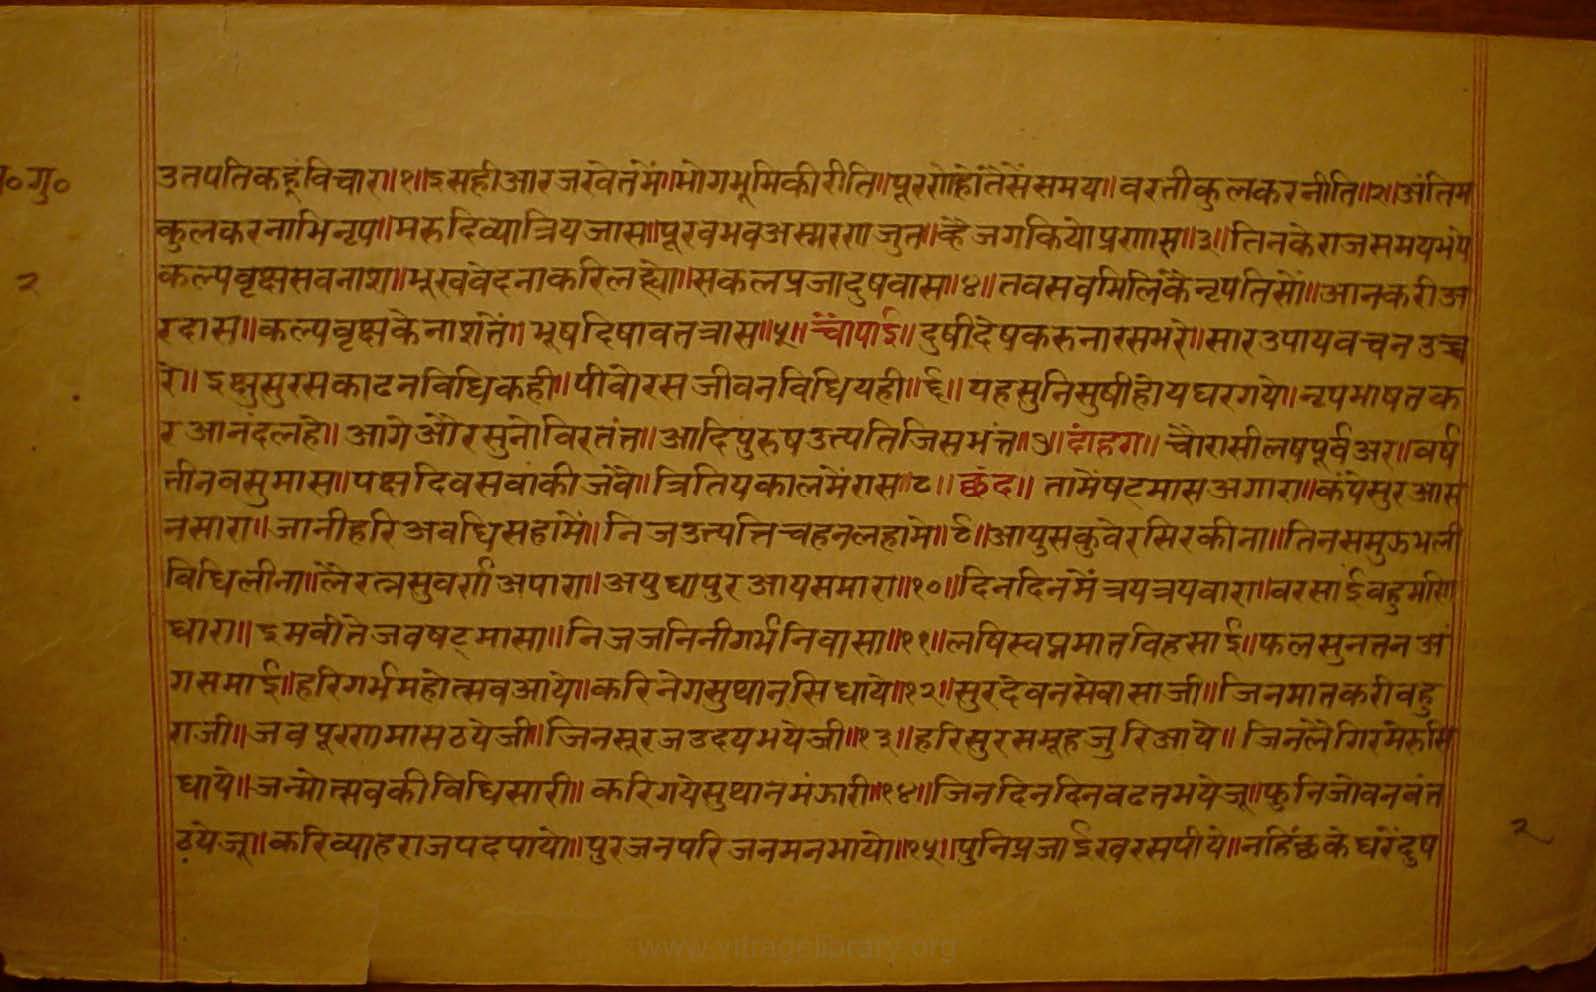 उतपतिकहूंविचार॥१॥इसहीआरजखेतमें॥भोगभूमिकीरीति॥पूरणहोतैसेंसमय॥वरतीकुलकरनीति॥२॥अंतिम
कुलकरनाभिनृप॥मरुदिव्यात्रियजास॥पूरवभवअस्मरणजुत॥व्हैजगकियोप्रणास॥३॥तिनकेराजसमयभये
२
कल्पवृक्षसवनाश॥भूखवेदनाकरिलह्यो॥सकलप्रजादुषवास॥४॥तवसवमिलिकैंनृपतिसों॥आनकरीअ
रदास॥कल्पवृक्षकेनाशतें॥भूषदिषावतत्रास॥५॥चौपाई॥दुषीदेषकरुनारसभरे॥सारउपायवचनउच्च
रे॥इक्षुसुरसकाढनविधिकही॥पीवोरसजीवनविधियही॥६॥यहसुनिसुषीहोयघरगये॥नृपभाषतक
रआनंदलहे॥आगेऔरसुनोविरतंत॥आदिपुरुषउत्पतिजिसभंत॥७॥दोहरा॥चौरासीलषपूर्वअर॥वर्ष
तीनवसुमास॥पक्षदिवसवांकीजेवे॥त्रितियकालमेंरास॥८॥छंद॥तामेंषट्मासअगारा॥कंपेसुरआस
नसारा॥जानीहरिअवधिसहामें॥निजउत्पत्तिचहनलहामे॥९॥आयुसकुवेरसिरकीना॥तिनसमुझभली
विधिलीना॥लैरत्नसुवर्णअपारा॥अयुधापुरआयसमारा॥१०॥दिनदिनमैंत्रयत्रयवारा॥वरसाईवहुमणि
धारा॥इमवीतेजवषट्मासा॥निजजनिनीगर्भनिवासा॥११॥लषिस्वप्नमातविहसाई॥फलसुनततनअं
गसमाई॥हरिगर्भमहोत्सवआये॥करिनेगसुथानसिधाये॥१२॥सुरदेवनसेवासाजी॥जिनमातकरीवहु
राजी॥जवपूरणमासठयेजी॥जिनसूरजउदयभयेजी॥१३॥हरिसुरसमूहजुरिआये॥जिनलैगिरमेरुसि
धाये॥जन्मोत्सवकीविधिसारी॥करिगयेसुथानमंझारी॥१४॥जिनदिनदिनवढतभयेजू॥फुनिजोवनवंत
ठयेजू॥करिव्याहराजपदपायो॥पुरजनपरिजनमनभायो॥१५॥पुनिप्रजाईखरसपीये॥नहिंछकेघरेंदुष
२
www.vitragelibrary.org